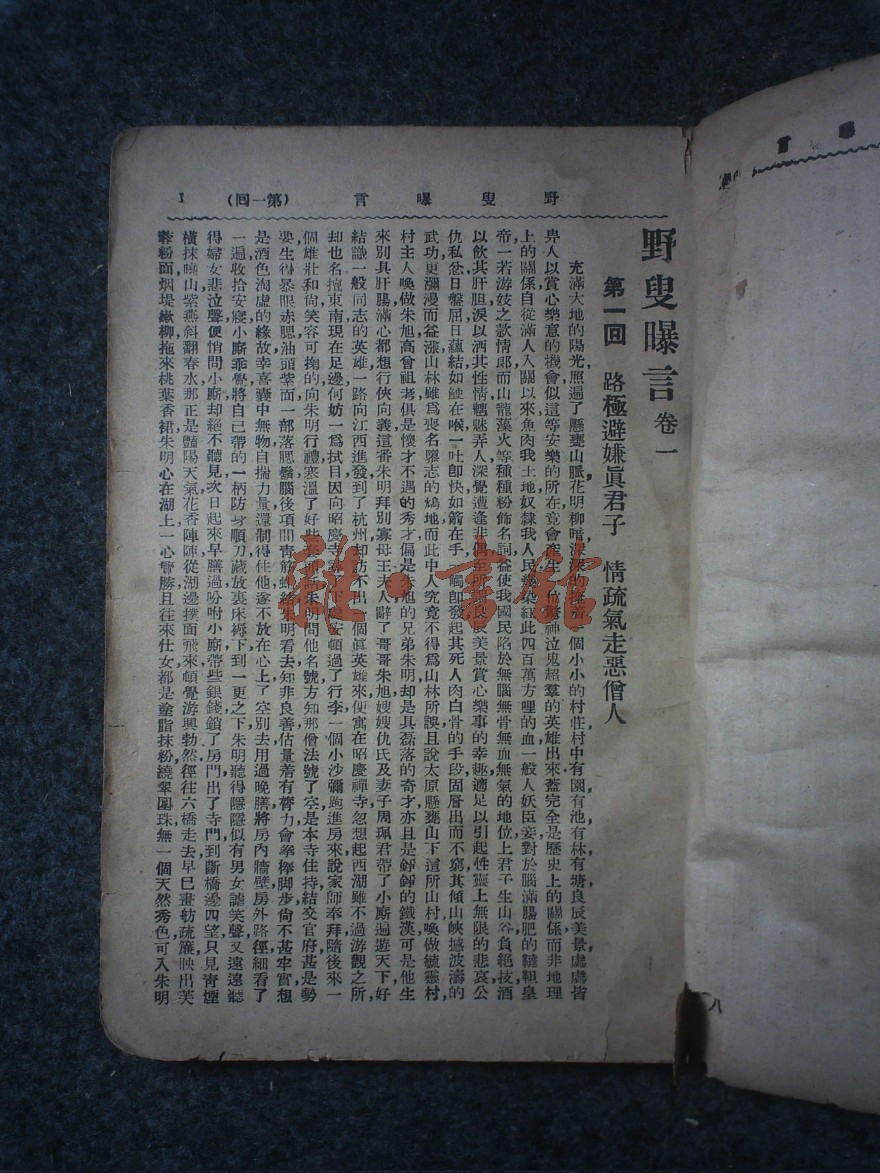 野叟曝言 (第一回) 1
野叟曝言 卷一
第一回 路極避嫌眞君子 情疏氣走惡僧人
充滿大地的陽光照遍了懸甕山脈花明柳暗深深的掩着一個小小的村莊村中有園有池有林有塘良辰美景處處皆
畀人以賞心樂意的機會似這等安樂的所在竟會產生一位驚神泣鬼超羣的英雄出來蓋完全是歷史上的關係而非地理
上的關係自從滿人入關以來魚肉我土地奴隸我人民染紅此四百萬方哩的血一般人妖臣妾對於腦滿腸肥的韃靼皇
帝一若游妓之款情郞而山龍藻火等種種粉飾名詞益使我國民陷於無腦無骨無血無氣的地位上君子生山谷負絕技酒
以飲其肝胆淚以洒其性情魑魅弄人深覺遭逢非偶至所謂良辰美景賞心樂事的幸趣適足以引起性靈上無限的悲哀公
仇私忿日盤屈日蘊結如鯁在喉一吐卽快如箭在手一觸卽發起其死人肉白骨的手段固層出而不窮其傾山峽撼波濤的
武功更瀰漫而益漲山林雖爲喪名墮志的場地而此中人究竟不得爲山林所誤且說太原懸甕山下這所山村喚做毓靈村
村主人喚做朱旭高曾祖考俱是懷才不遇的秀才偏是朱旭的兄弟朱明却是具磊落的奇才亦且是錚錚的鐵漢可是他生
來別具肝腸滿心都想行俠向義這番朱明拜別寡母王夫人辭了哥哥朱旭嫂嫂仇氏及妻子周珮君帶了小廝遍遊天下好
結識一般同志的英雄一路向江西進發到了杭州却訪不出一個眞英雄來便寓在昭慶禪寺忽想起西湖雖不過游觀之所
却也名擅東南現在足邊何妨一爲拭目因向昭慶寺下處安頓過了行李一個小沙彌跑進房來說家師奉拜隨後來一
個雄壯和尙笑容可掬的向朱明行禮寒溫了好些套話朱明問他名號方知那僧法號了空是本寺住持結交官府甚是勢
要生得暴眼赤腮油頭紫面一部落腮鬍腦後項間靑筋蚓結朱明看去知非良善估量着有膂力會拳棒脚步尙不甚牢實想
是酒色淘虛的緣故幸喜囊中無物自揣力量還制得住他遂不放在心上了空別去用過晚膳將房內牆壁房外路徑細看了
一遍收拾安寢小廝乖覺將自己帶的一柄防身順刀藏放裏床褥下到一更之下朱明聽得隱隱似有男女謔笑聲又遠遠聽
得婦女悲泣聲便悄問小廝却絕不聽見次日起來早膳過吩咐小廝帶些銀錢鎖了房門出了寺門到斷橋邊四望只見靑煙
橫抹曉山紫燕斜翻春水那正是豔陽天氣花香陣陣從湖邊撲面飛來頓覺游興勃然徑往六橋走去早巳畫舫疏簾映出芙
蓉粉面烟堤嫩柳拖來桃葉香裙朱明心在湖上一心覽勝且往來仕女都是塗脂抹粉繞翠圍珠無一個天然秀色可入朱明